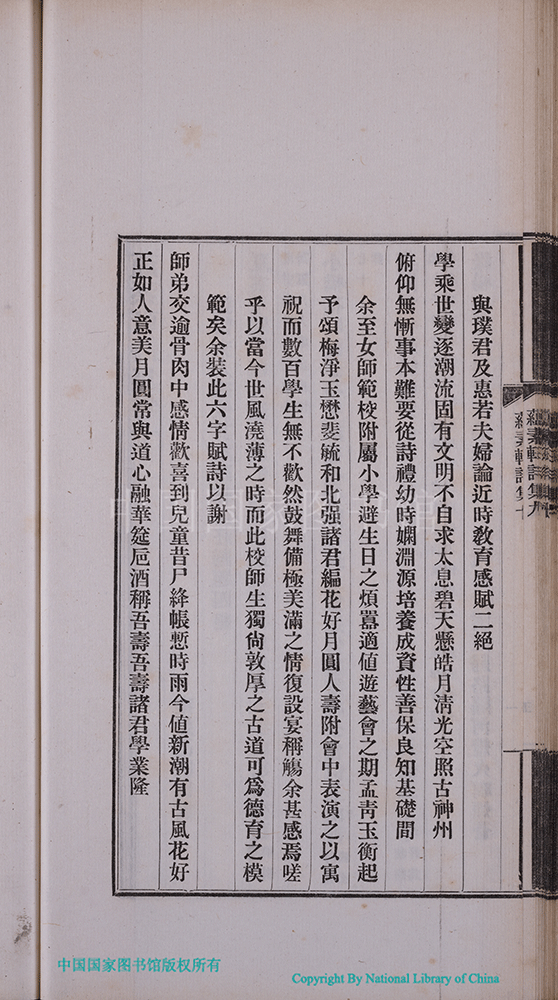 與璞君及惠若夫婦論近時教育感賦二絕
學乘世變逐潮流固有文明不自求太息碧天懸皓月清光空照古神州
俯仰無慚事本難要從詩禮幼時嫻淵源培養成資性善保良知基礎間
余至女師範校附屬小學避生日之煩囂適値遊藝會之期孟靑玉衡起
予頌梅淨玉懋斐毓和北强諸君編花好月圓人壽附會中表演之以寓
祝而數百學生無不歡然鼓舞備極美滿之情復設宴稱觴余甚感焉嗟
乎以當今世風澆薄之時而此校師生獨尙敦厚之古道可爲德育之模
範矣余裝此六字賦詩以謝
師弟交逾骨肉中感情歡喜到兒童昔尸絳帳慙時雨今値新潮有古風花好
正如人意美月圓常與道心融華筵巵酒稱吾壽吾壽諸君學業隆
蘊素軒詩集九
蘊素軒詩集十
中国国家图书馆
中国国家图书馆版权所有
Copyright By National Library of China